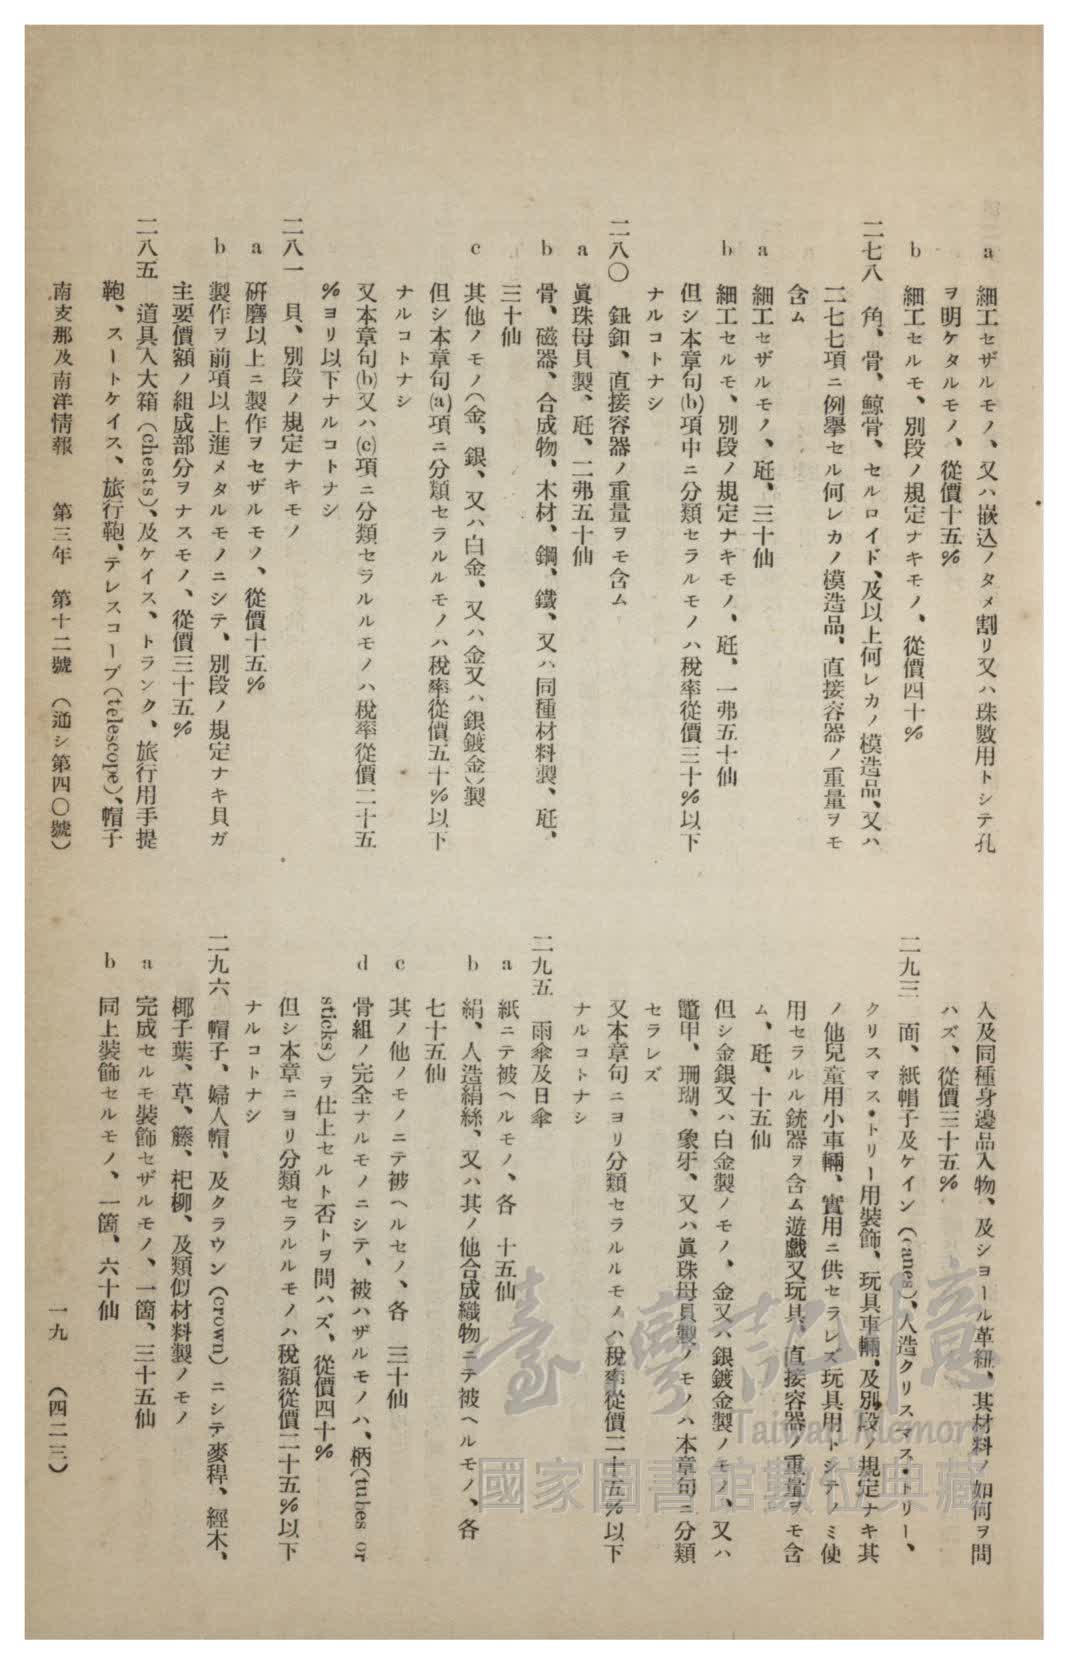 a 細工セザルモノ、又ハ嵌込ノタメ割リ又ハ珠數用トシテ孔
ヲ明ケタルモノ、從價十五%
b 細工セルモ、別段ノ規定ナキモノ、從價四十%
二七八 角、骨、鯨骨、セルロイド、及以上何レカノ模造品、又ハ
二七七項ニ例擧セル何レカノ模造品、直接容器ノ重量ヲモ
含ム
a 細工セザルモノ、瓩、三十仙
b 細工セルモ、別段ノ規定ナキモノ、瓩、一弗五十仙
但シ本章句(b)項中ニ分類セラルモノハ稅率從價三十%以下
ナルコトナシ
二八〇 鈕釦、直接容器ノ重量ヲモ含ム
a 眞珠母貝製、瓩、二弗五十仙
b 骨、磁器、合成物、木材、鋼、鐵、又ハ同種材料製、瓩、
三十仙
c 其他ノモノ(金、銀、又ハ白金、又ハ金又ハ銀鍍金)製
但シ本章句(a)項ニ分類セラルルモノハ稅率從價五十%以下
ナルコトナシ
又本章句(b)又ハ(c)項ニ分類セラルルモノハ稅率從價二十五
%ヨリ以下ナルコトナシ
二八一 貝、別段ノ規定ナキモノ
a 硏磨以上ニ製作ヲセザルモノ、從價十五%
b 製作ヲ前項以上進メタルモノニシテ、別段ノ規定ナキ貝ガ
主要價額ノ組成部分ヲナスモノ、從價三十五%
二八五 道具入大箱(chests)、及ケイス、トランク、旅行用手提
鞄、スートケイス、旅行鞄、テレスコープ(telescope)、帽子
入及同種身邊品入物、及ショール革紐、其材料ノ如何ヲ問
ハズ、從價三十五%
二九三 面、紙帽子及ケイン(canes)、人造クリスマス・トリー、
クリスマス・トリー用裝飾、玩具車輛、及別段ノ規定ナキ其
ノ他兒童用小車輛、實用ニ供セラレズ玩具用トシテノミ使
用セラルル銃器ヲ含ム遊戲又玩具、直接容器ノ重量ヲモ含
ム、瓩、十五仙
但シ金銀又ハ白金製ノモノ、金又ハ銀鍍金製ノモノ、又ハ
鼈甲、珊瑚、象牙、又ハ眞珠母貝製ノモノハ本章句ニ分類
セラレズ
又本章句ニヨリ分類セラルルモノハ稅率從價二十五%以下
ナルコトナシ
二九五 雨傘及日傘
a 紙ニテ被ヘルモノ、各 十五仙
b 絹、人造絹絲、又ハ其ノ他合成織物ニテ被ヘルモノ、各
七十五仙
c 其ノ他ノモノニテ被ヘルセノ、各 三十仙
d 骨組ノ完全ナルモノニシテ、被ハザルモノハ、柄(tubes or
sticks)ヲ仕上セルト否トヲ問ハズ、從價四十%
但シ本章ニヨリ分類セラルルモノハ稅額從價二十五%以下
ナルコトナシ
二九六 帽子、婦人帽、及クラウン(crown)ニシテ麥稈、經木、
椰子葉、草、籐、杞柳、及類似材料製ノモノ
a 完成セルモ裝飾セザルモノ、一箇、三十五仙
b 同上裝飾セルモノ、一箇、六十仙
南支那及南洋情報 第三年 第十二號 (通シ第四〇號)
一九 (四二三)
臺灣記憶
Taiwan Memory
國家圖書館數位典藏